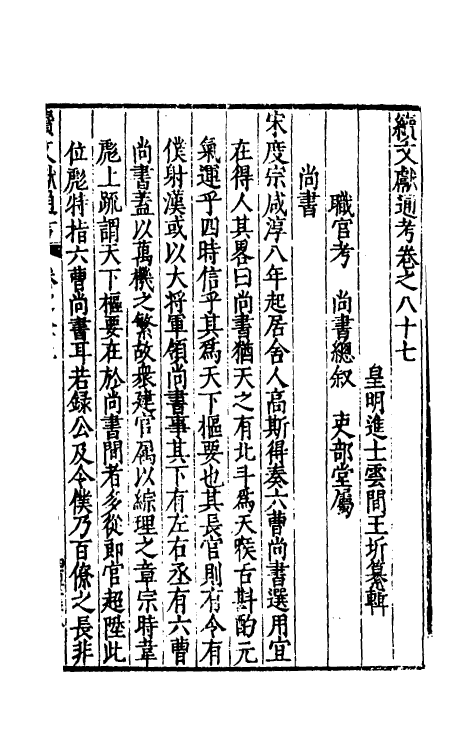 續文獻通考卷之八十七
皇明進士雲間王圻纂輯
職官考　尚書總叙　吏部堂屬
尚書
宋度宗咸淳八年起居舍人高斯得奏六曹尚書選用宜
在得人其畧曰尚書猶天之有北斗爲天喉舌斟酌元
氣運乎四時信乎其爲天下樞要也其長官則有令有
僕射漢或以大將軍領尚書事其下有左右丞有六曹
尚書蓋以萬機之繁故衆建官属以綜理之章宗時韋
彪上疏謂天下樞要在於尚書間者多從郎官超陞此
位彪特指六曹尚書耳若録公及令僕乃百僚之長非